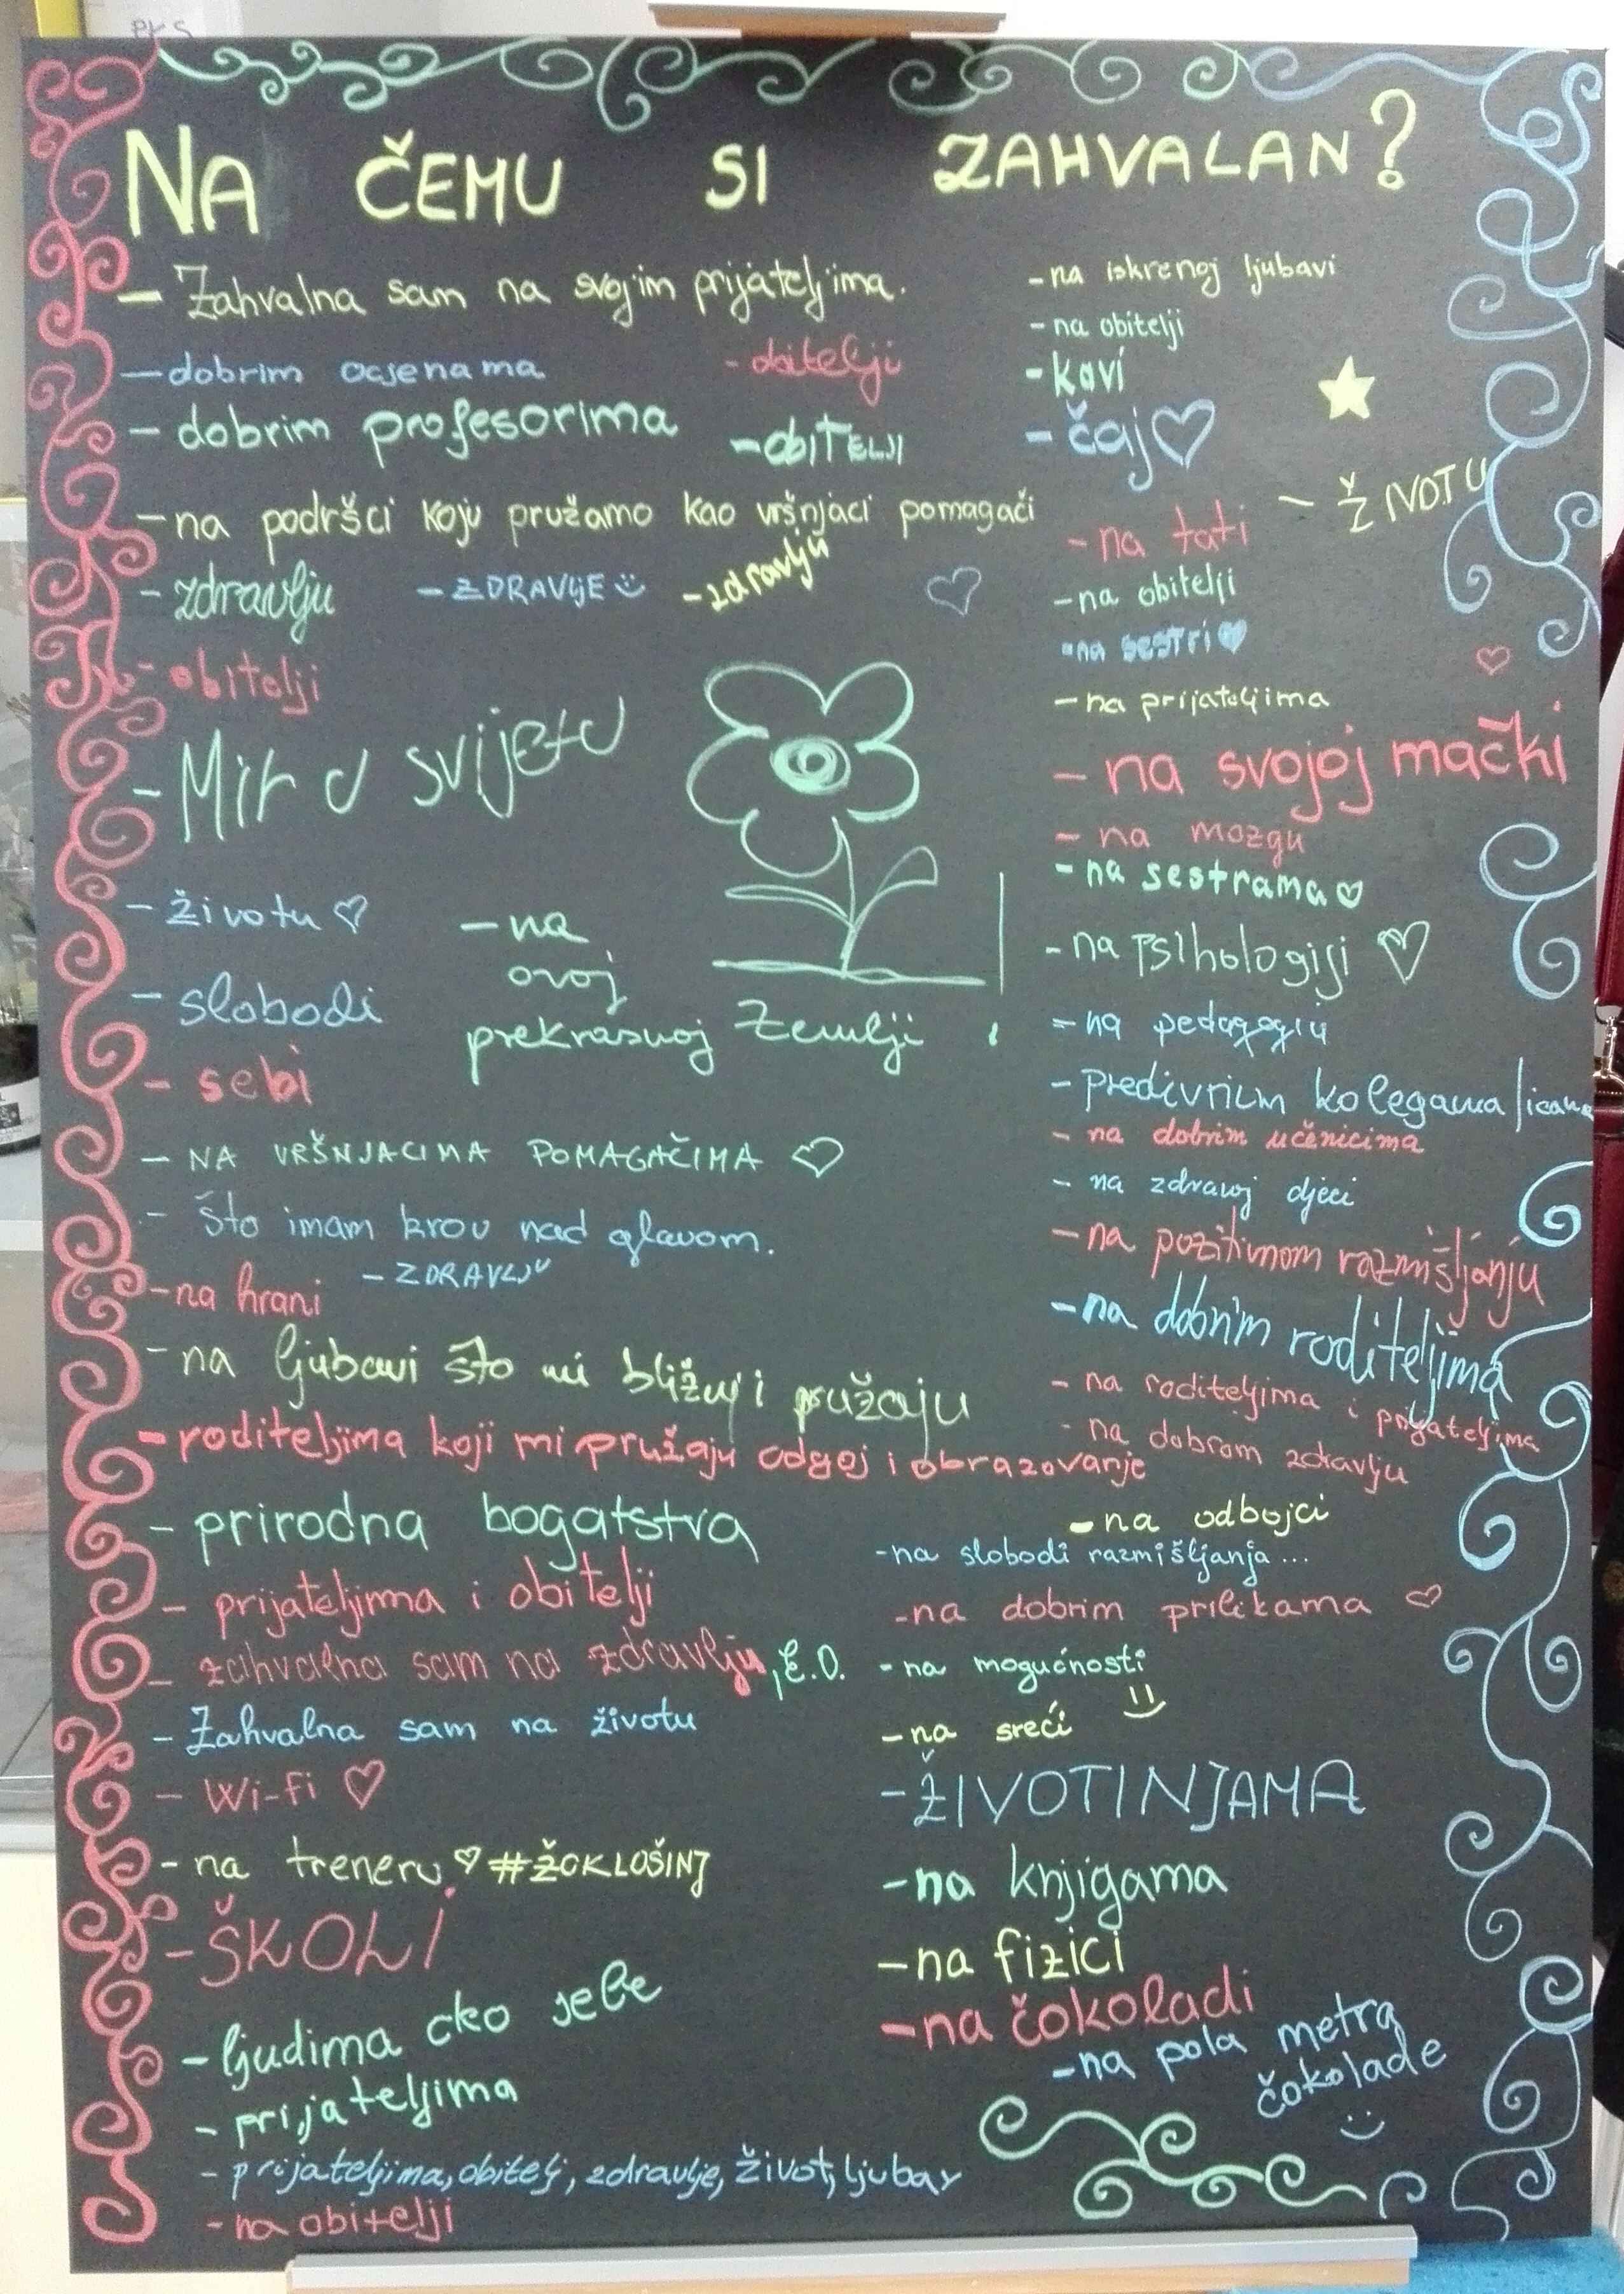 eks
NA ČEMU SI ZAHVALAN?
- Zahvalna sam na svojim prijateljima.
- dobrim ocjenama - obitelji
- dobrim profesorima - OBITELJI
- na podršci koju pružamo kao vršnjaci pomagači
- zdravlju - ZDRAVLJE - zdravlju
- obitelji
- Mir u svijetu
- životu
- slobodi
- na
ovoj
prekrasnoj Zemlji !
- sebi
- NA VRŠNJACIMA POMAGAČIMA
- što imam krov nad glavom.
- na hrani - ZDRAVLJU
- na ljubavi što mi bližnji pružaju
- roditeljima koji mi pružaju odgoj i obrazovanje
- prirodna bogatstva
- prijateljima i obitelji
- zahvalna sam na zdravlju, E.O.
- Zahvalna sam na životu
- Wi-fi
- na treneru #ŽOKLOŠINJ
- ŠKOLI
- ljudima oko sebe
- prijateljima
- prijateljima, obitelj, zdravlje, život, ljubav
- na obitelji
- na iskrenoj ljubavi
- na obitelji
- kavi
- čaj
- ŽIVOTU
- na tati
- na obitelji
- na sestri
- na prijateljima
- na svojoj mački
- na mozgu
- na sestrama
- na psihologiji
- na pedagogiji
- predivnim kolegama/icama
- na dobrim učenicima
- na zdravoj djeci
- na pozitivnom razmišljanju
- na dobrim roditeljima
- na roditeljima i prijateljima
- na dobrom zdravlju
- na odbojci
- na slobodi razmišljanja...
- na dobrim prilikama
- na mogućnosti
- na sreći
- ŽIVOTINJAMA
- na knjigama
- na fizici
- na čokoladi
- na pola metra
čokolade